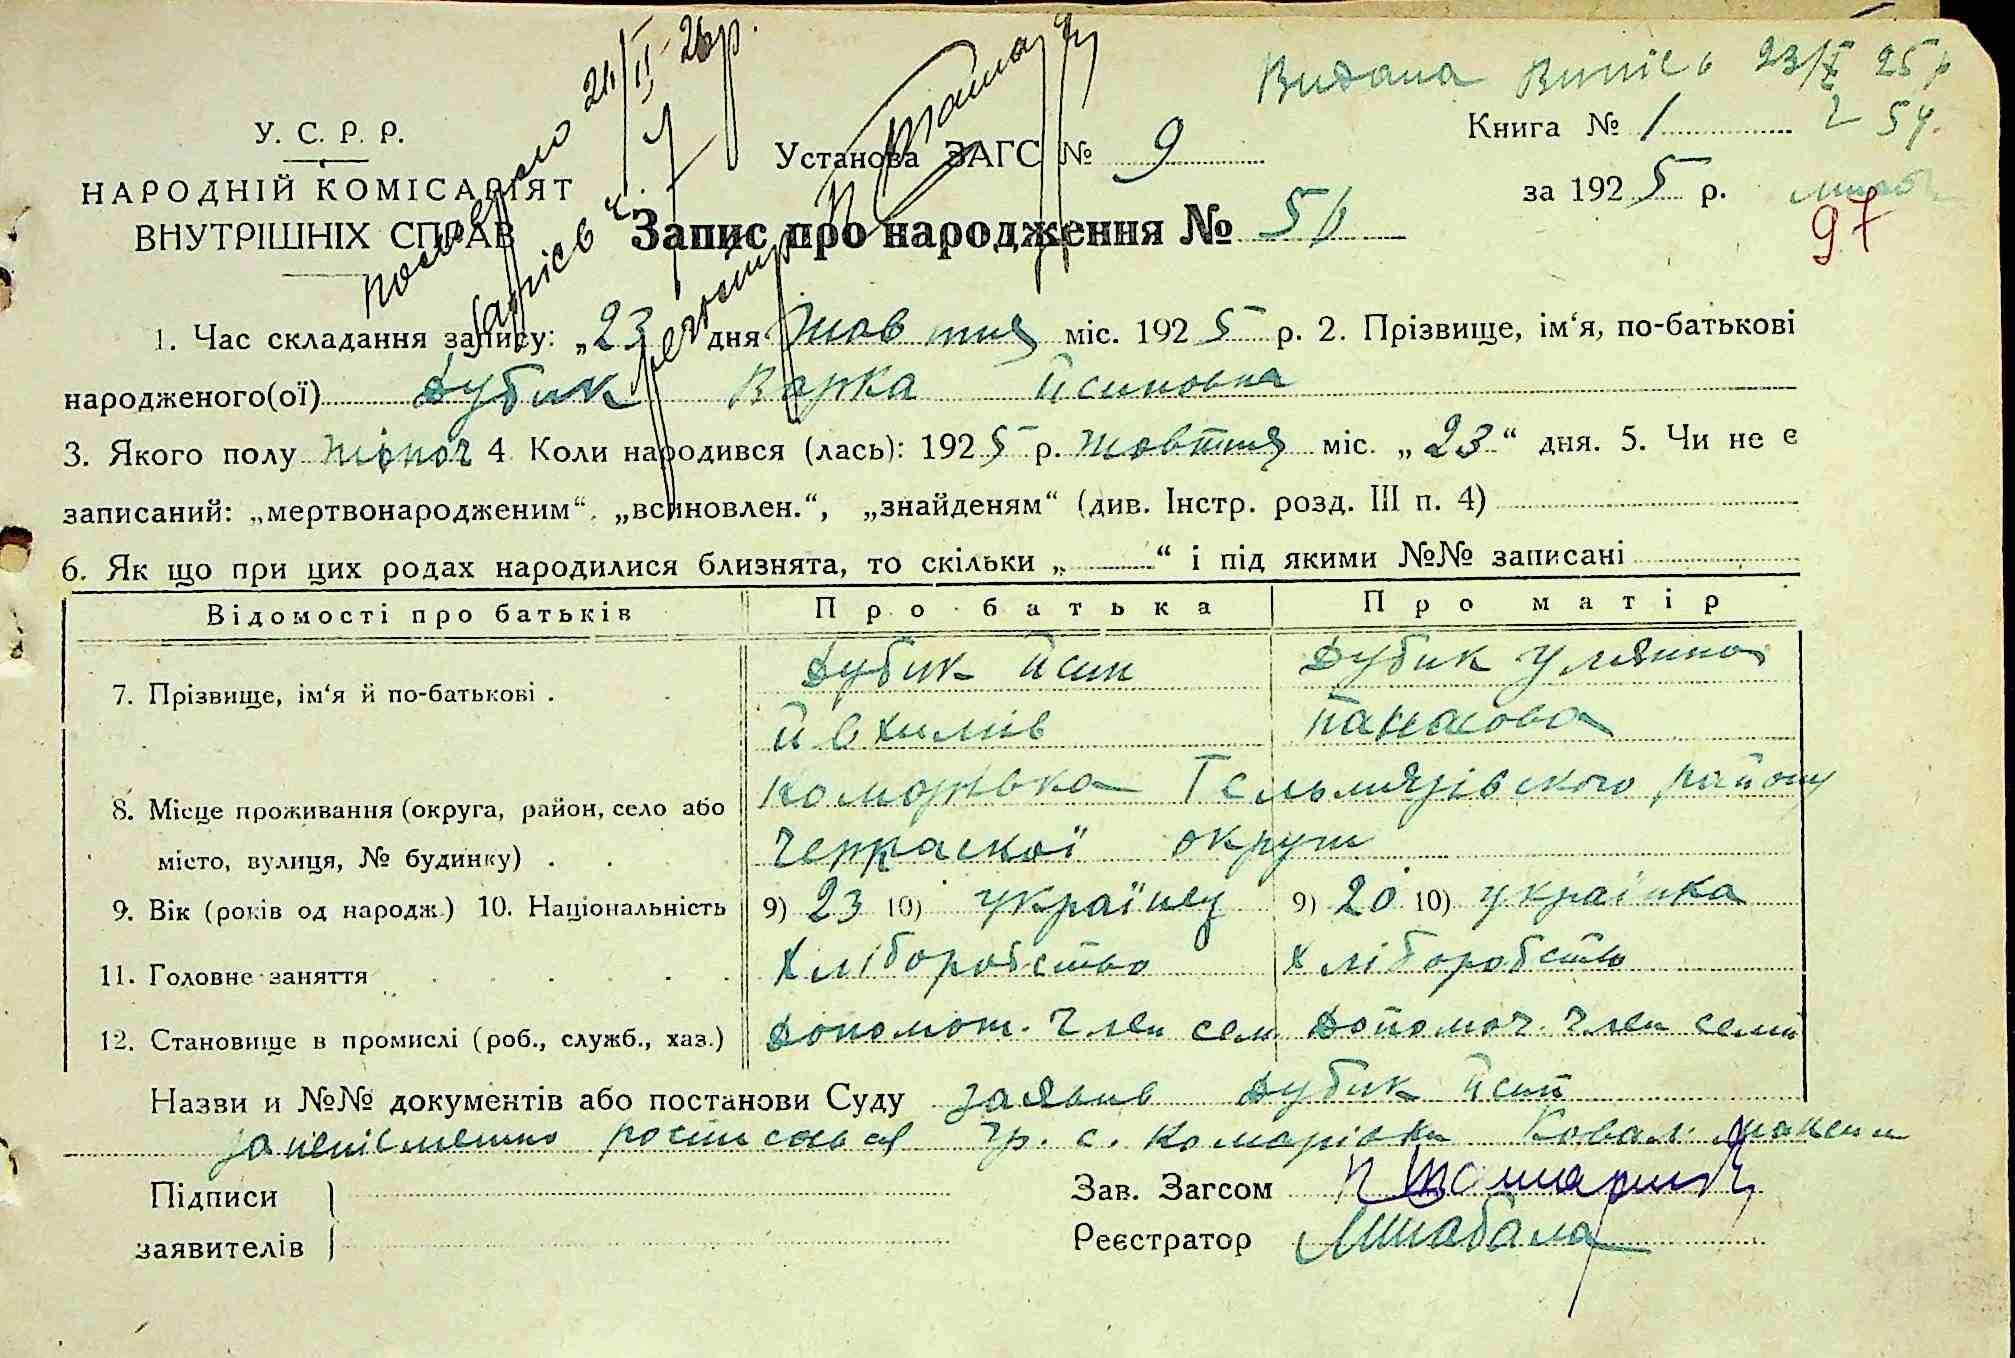 Видана Випісь 23/X 25 р
У. С. Р. Р.
НАРОДНІЙ КОМІСАРІЯТ
ВНУТРІШНІХ СПРАВ
24/II 26 р.
Установа ЗАГС № 9
Книга № 1
54.
за 1925 р.
97
Запис про народження №
1. Час складання запису: „23 дня Жовтня міс. 1925 р. 2. Прізвище, ім‘я, по-батькові
народженого(ої) Дубик Варка Йсиповна
3. Якого полу жіноч 4 Коли народився (лась): 1925 р. жовтня міс. „23“ дня. 5. Чи не є
записаний: „мертвонародженим“, „всиновлен.“, „знайденям“ (див. Інстр. розд. III п. 4)
6. Як що при цих родах народилися близнята, то скільки „ “ і під якими №№ записані
Відомості про батьків Про батька Про матір
7. Прізвище, ім‘я й по-батькові . Дубик Йсип Дубик Улянна
Йвхимів Панасова
8. Місце проживання (округа, район, село або Коморівка Гельмязівского району
місто, вулиця, № будинку) . Черкаскої округи
9. Вік (років од народж.) 10. Національність 9) 23 10) українец 9) 20 10) украінка
11. Головне заняття Хліборобство Хліборобство
12. Становище в промислі (роб., служб., хаз.) Допомог. член сем Допомоч. член семі
Назви и №№ документів або постанови Суду заявив Дубик Йсип
за неписменно росписався гр. с. Комарівки Коваль
Підписи
Зав. Загсом
заявителів
Реєстратор